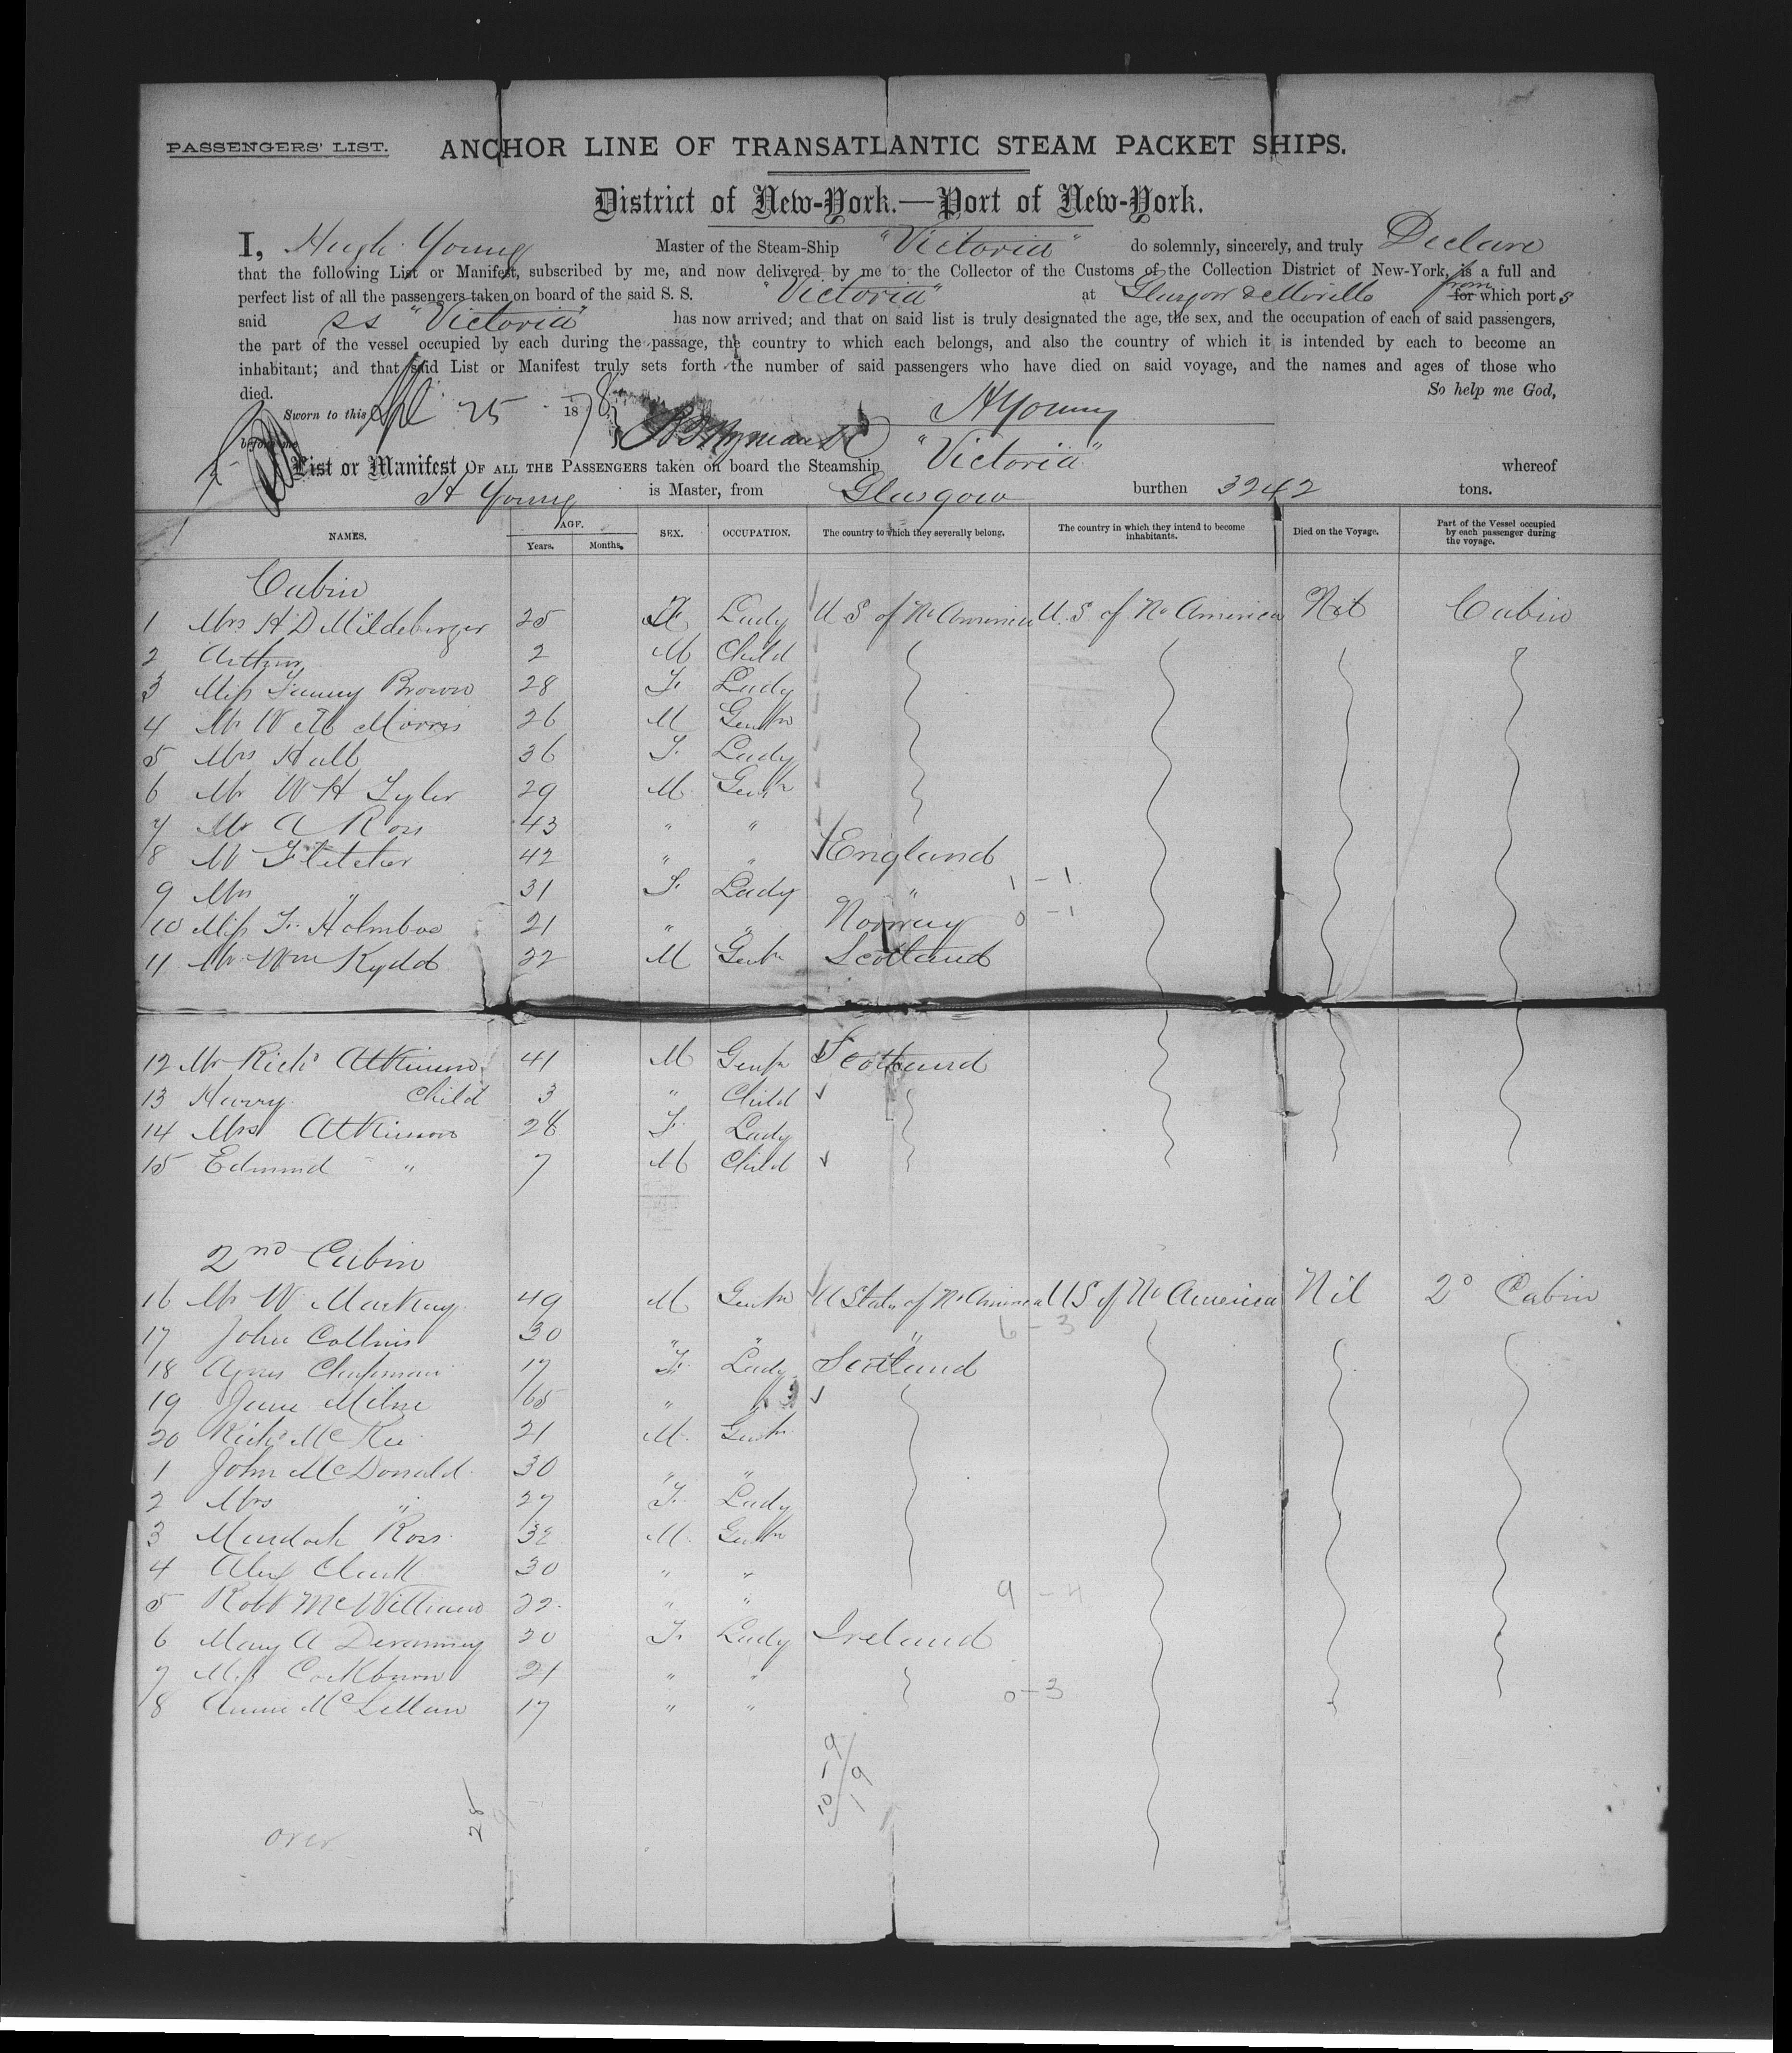 PASSENGERS' LIST. ANCHOR LINE OF TRANSATLANTIC STEAM PACKET SHIPS.
District of New-York.—Port of New-York.
I, Hugh Young Master of the Steam-Ship "Victoria" do solemnly, sincerely, and truly Declare
that the following List or Manifest, subscribed by me, and now delivered by me to the Collector of the Customs of the Collection District of New-York, is a full and
perfect list of all the passengers taken on board of the said S. S. "Victoria" at Glasgow & Moville from for which port s
said SS "Victoria" has now arrived; and that on said list is truly designated the age, the sex, and the occupation of each of said passengers,
the part of the vessel occupied by each during the passage, the country to which each belongs, and also the country of which it is intended by each to become an
inhabitant; and that said List or Manifest truly sets forth the number of said passengers who have died on said voyage, and the names and ages of those who
died. So help me God,
Sworn to this Apl 25 1878 H Young
before me
List or Manifest OF ALL THE PASSENGERS taken on board the Steamship "Victoria" whereof
H Young is Master, from Glasgow burthen 3242 tons.
NAMES. AGE. Years. Months. SEX. OCCUPATION. The country to which they severally belong. The country in which they intend to become inhabitants. Died on the Voyage. Part of the Vessel occupied by each passenger during the voyage.
Cabin
1 Mrs H D Mildeberger 25 F Lady U S of No America U.S of No America Not Cabin
2 Arthur 2 M Child
3 Miss Fanny Brown 28 F. Lady
4 Mr W M Morris 26 M Gentn
5 Mrs Hall 36 F. Lady
6 Mr W H Tyler 29 M. Gentn
7 Mr A Ross 43 " "
8 Mr Fletcher 42 " " England
9 Mrs " 31 F. Lady " 1 - 1
10 Miss F. Holmboe 21 " " Norway 0 - 1
11 Mr Wm Kydd 22 M Gentn Scotland
12 Mr Richd Atkinson 41 M Gentn Scotland
13 Harry Child 3 " Child
14 Mrs Atkinson 28 F. Lady
15 Edmund " 7 M Child
2nd Cabin
16 Mr W Mackay 49 M Gentn U States of No America U S of No America Nil 2° Cabin
17 John Collins 30 " " " 6 - 3
18 Agnes Chapman 17 F. Lady Scotland
19 Jane Milne 65 " "
20 Richd McKee 21 M. Gentn
1 John McDonald 30 " "
2 Mrs " 27 F. Lady
3 Murdoch Ross 32 M. Gentn
4 Alex Clark 30 " "
5 Robt McWilliams 22 " " 9 - 4
6 Mary A Devanney 20 F. Lady Ireland
7 Miss Cockburn 21 " "
8 Annie McLellan 17 " " 0 - 3
10 - 9 / 19
28
over